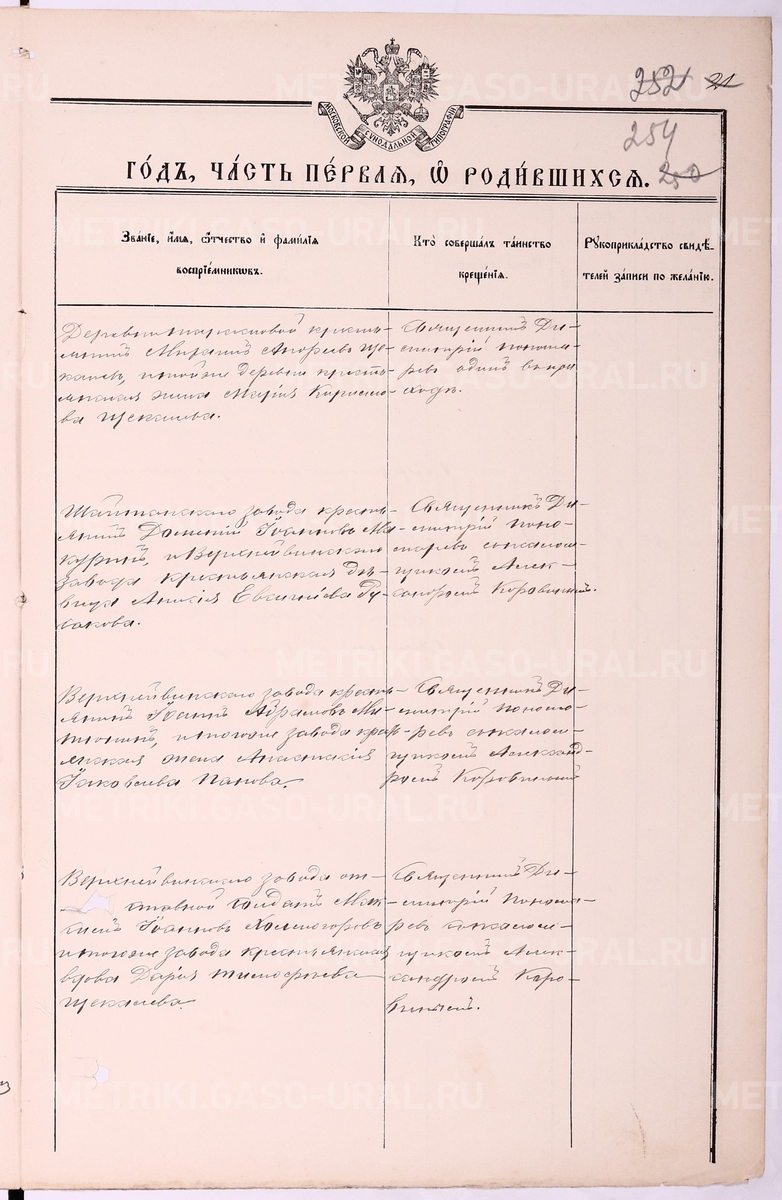 252 21
254
250
МОСКОВСКОЙ СѴНОДАЛЬНОЙ ТИПОГРАФІИ
ГО́ДЪ, ЧА́СТЬ ПЕ́РВАЯ, Ѽ РОДИ́ВШИХСЯ.
Зва́ніе, и́мя, ѻ́тчество и҆ фами́лія
воспріе́мниковъ.
Кто̀ соверша́лъ та́инство
креще́нія.
Рꙋкоприкла́дство свидѣ́-
телей за́писи по жела́нію.
Деревни крестья-
нинъ Андреевъ Ще-
калевъ, и тойже деревни кресть-
янская жена Марія Кирило-
ва Щекалева.
Священникъ Ди-
митрій Понома-
ревъ одинъ въ при-
ходѣ.
Шайтанскаго завода кресть-
янинъ Іоанновъ Ма-
куринъ, и Верхнейвинскаго
завода крестьянская дѣ-
вица Евгеніева Гу-
сакова.
Священникъ Ди-
митрій Поно-
маревъ съ псалом-
щикомъ Алек-
сандромъ Коровинымъ.
Верхнейвинскаго завода кресть-
янинъ Іоаннъ Абрамовъ
и тогоже завода крест-
янская жена Анастасія
Іаковлева Панова.
Священникъ Ди-
митрій Понома-
ревъ съ псалом-
щикомъ Александ-
ромъ Коровинымъ
Верхнейвинскаго завода от-
ставной солдатъ Мак-
симъ Іоанновъ Холмогоровъ
и тогоже завода крестьянская
вдова Дарія Тимофѣева
Щекалева.
Священникъ Ди-
митрій Понома-
ревъ съ псалом-
щикомъ Алек-
сандромъ Коро-
винымъ.
METRIKI.GASO-URAL.RU